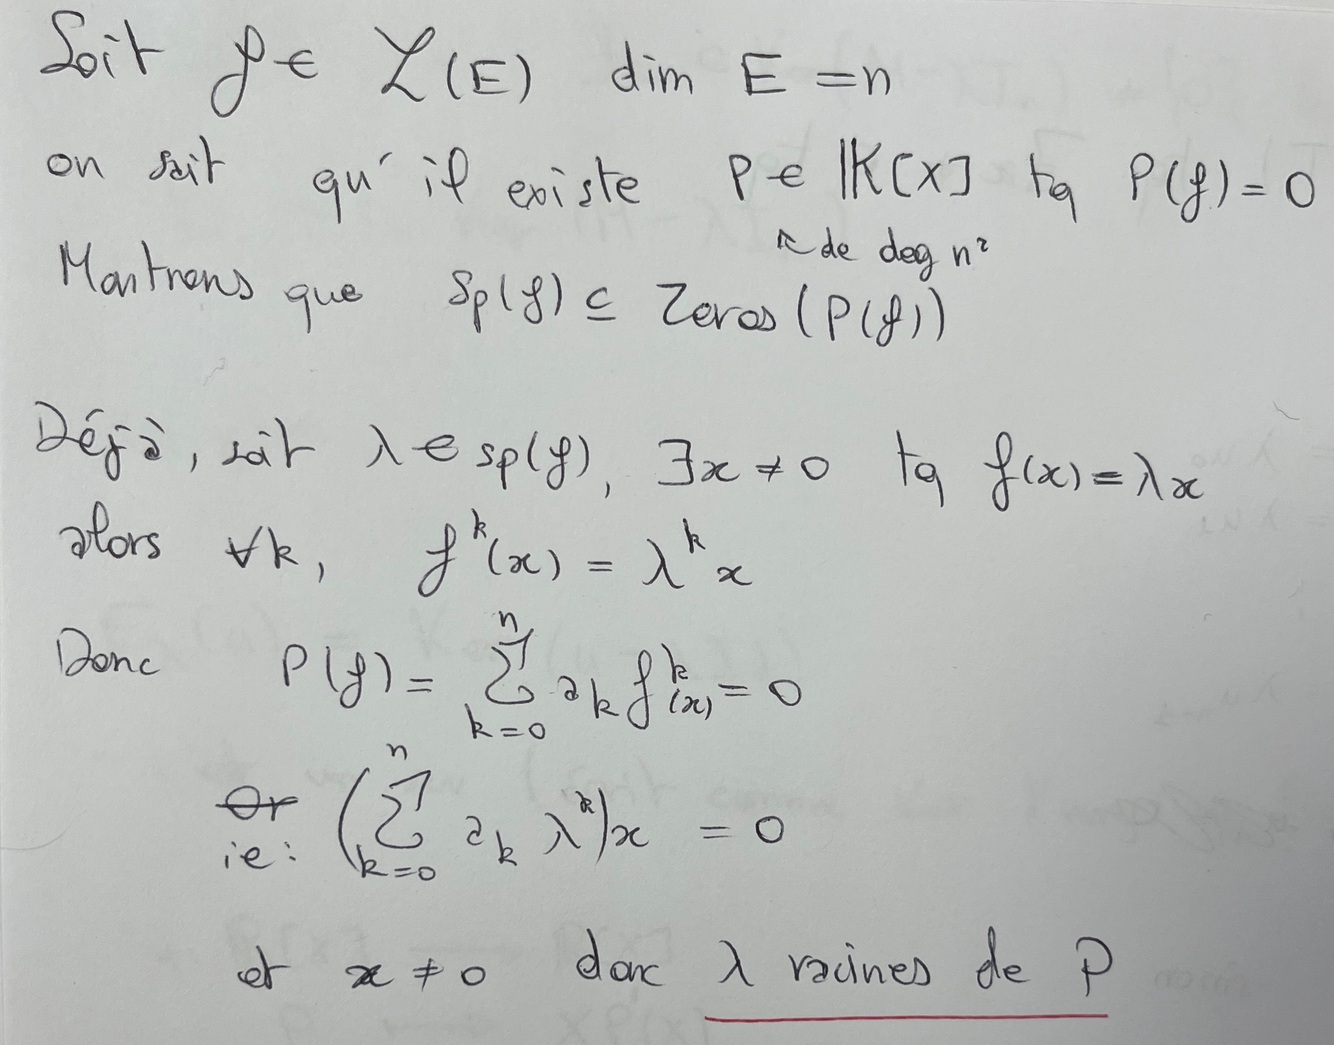 Soit f ∈ ℒ(E) dim E = n
on sait qu'il existe P ∈ 𝕂[X] tq P(f) = 0
↖ de deg n²
Montrons que Sp(f) ⊆ Zeros (P(f))
Déjà, soit λ ∈ sp(f), ∃x ≠ 0 tq f(x) = λx
alors ∀k, f^k(x) = λ^k x
Donc P(f) = ∑_{k=0}^{n} a_k f^k(x) = 0
Or
ie: (∑_{k=0}^{n} a_k λ^k)x = 0
et x ≠ 0 donc λ racines de P